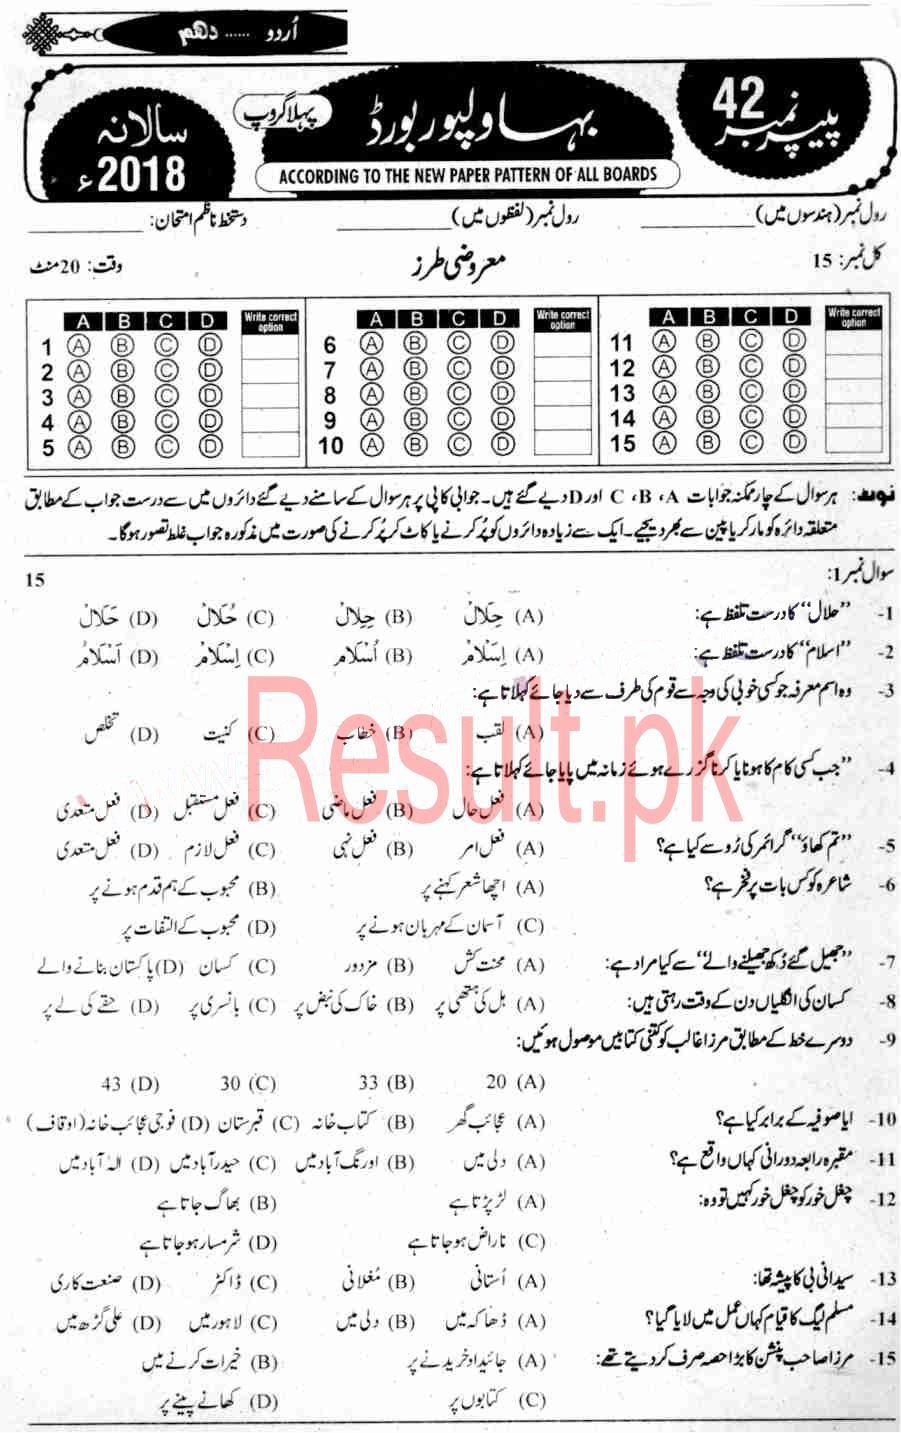 اُردو ...... دھم
پیپر نمبر 42
بہاولپور بورڈ
پہلا گروپ
سالانہ 2018ء
ACCORDING TO THE NEW PAPER PATTERN OF ALL BOARDS
رول نمبر (ہندسوں میں) ____________ رول نمبر (لفظوں میں) ____________ دستخط ناظم امتحان: ____________
کل نمبر: 15 معروضی طرز وقت: 20 منٹ
A B C D Write correct option A B C D Write correct option A B C D Write correct option
1 A B C D 6 A B C D 11 A B C D
2 A B C D 7 A B C D 12 A B C D
3 A B C D 8 A B C D 13 A B C D
4 A B C D 9 A B C D 14 A B C D
5 A B C D 10 A B C D 15 A B C D
نوٹ: ہر سوال کے چار ممکنہ جوابات A ، B ، C اور D دیے گئے ہیں۔ جوابی کاپی پر ہر سوال کے سامنے دیے گئے دائروں میں سے درست جواب کے مطابق
متعلقہ دائرہ کو مارکر یا پین سے بھر دیجیے۔ ایک سے زیادہ دائروں کو پُر کرنے یا کاٹ کر پُر کرنے کی صورت میں مذکورہ جواب غلط تصور ہوگا۔
سوال نمبر 1: 15
1- ”حلال“ کا درست تلفظ ہے: (A) حِلَالْ (B) حِلالْ (C) حُلَالْ (D) حَلَالْ
2- ”اسلام“ کا درست تلفظ ہے: (A) اِسَلَامْ (B) اُسْلَام (C) اِسْلَامْ (D) اَسْلَامْ
3- وہ اسم معرفہ جو کسی خوبی کی وجہ سے قوم کی طرف سے دیا جائے کہلاتا ہے:
(A) لقب (B) خطاب (C) کنیت (D) تخلص
4- ”جب کسی کام کا ہونا یا کرنا گزرے ہوئے زمانہ میں پایا جائے کہلاتا ہے:
(A) فعل حال (B) فعل ماضی (C) فعل مستقبل (D) فعل متعدی
5- ”تم کھاؤ“ گرائمر کی رُو سے کیا ہے؟ (A) فعل امر (B) فعل نہی (C) فعل لازم (D) فعل متعدی
6- شاعرہ کو کس بات پر فخر ہے؟ (A) اچھا شعر کہنے پر (B) محبوب کے ہم قدم ہونے پر
(C) آسمان کے مہربان ہونے پر (D) محبوب کے التفات پر
7- ”جھیل گئے دُکھ جھیلنے والے“ سے کیا مراد ہے: (A) محنت کش (B) مزدور (C) کسان (D) پاکستان بنانے والے
8- کسان کی انگلیاں دن کے وقت رہتی ہیں: (A) ہل کی ہتھی پر (B) خاک کی نبض پر (C) بانسری پر (D) حقے کی لے پر
9- دوسرے خط کے مطابق مرزا غالب کو کتنی کتابیں موصول ہوئیں:
(A) 20 (B) 33 (C) 30 (D) 43
10- ایا صوفیہ کے برابر کیا ہے؟ (A) عجائب گھر (B) کتاب خانہ (C) قبرستان (D) فوجی عجائب خانہ (اوقاف)
11- مقبرہ رابعہ دورانی کہاں واقع ہے؟ (A) دلی میں (B) اورنگ آباد میں (C) حیدر آباد میں (D) الہٰ آباد میں
12- چغل خور کو چغل خور کہیں تو وہ: (A) لڑ پڑتا ہے (B) بھاگ جاتا ہے
(C) ناراض ہو جاتا ہے (D) شرمسار ہو جاتا ہے
13- سیدانی بی کا پیشہ تھا: (A) اُستانی (B) مُغلانی (C) ڈاکٹر (D) صنعت کاری
14- مسلم لیگ کا قیام کہاں عمل میں لایا گیا؟ (A) ڈھاکہ میں (B) دلی میں (C) لاہور میں (D) علی گڑھ میں
15- مرزا صاحب پنشن کا بڑا حصہ صرف کر دیتے تھے: (A) جائیداد خریدنے پر (B) خیرات کرنے میں
(C) کتابوں پر (D) کھانے پینے پر
Result.pk